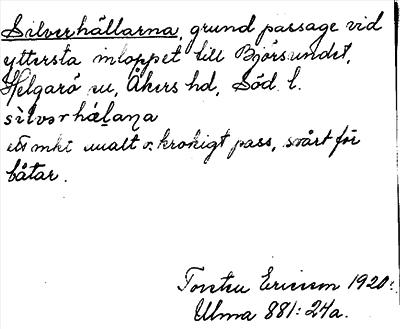 Silverhällarna, grund passage vid
yttersta inloppet till Björsundet,
Helgarö sn, Åkers hd, Söd. l.
sìlvərhä́laɳa
ett mkt smalt o. krokigt pass, svårt för
båtar.
Torsten Ericsson 1920:
Ulma 881:24a.